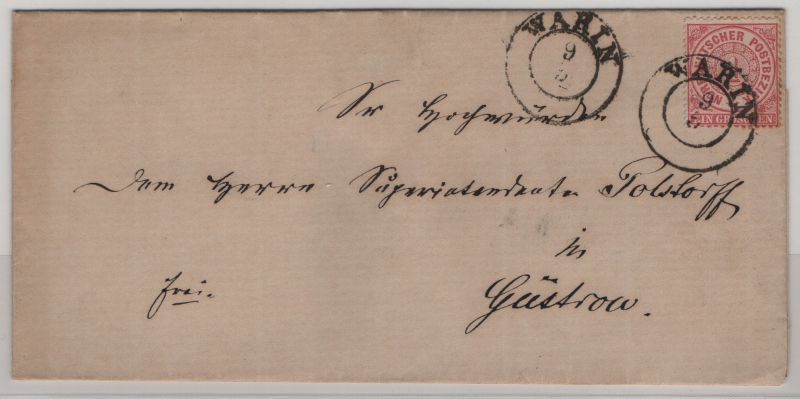 WARIN
9
2
NORDDEUTSCHER POSTBEZIRK
EIN GROSCHEN
WARIN
9
2
Sr Hochwürden
Dem Herrn Superintendenten Polstorff
in
Güstrow.
frei.